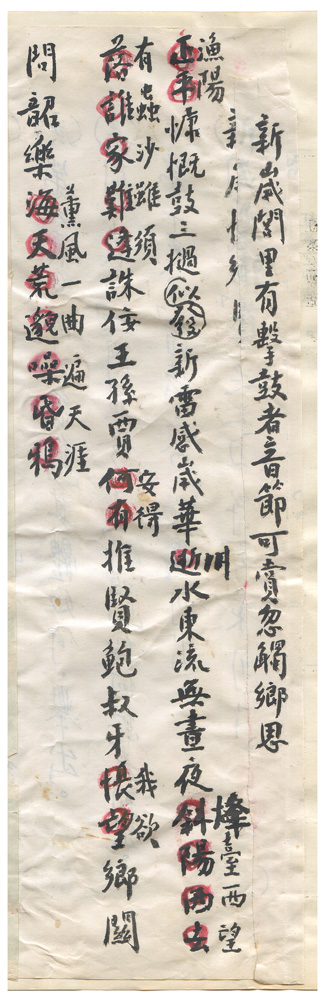 新歲閭里有擊鼓者音節可賞忽觸鄉思
漁陽
正平慷慨鼓三撾似發新雷感歲華逝水東流無晝夜斜陽西去
川
燧臺西望
有蟲沙雖須
落誰家難遠誅佞王孫賈何有推賢鮑叔牙悵望鄉關
安得
我欲
問韶樂海天荒邈噪昏鴉
薰風一曲遍天涯